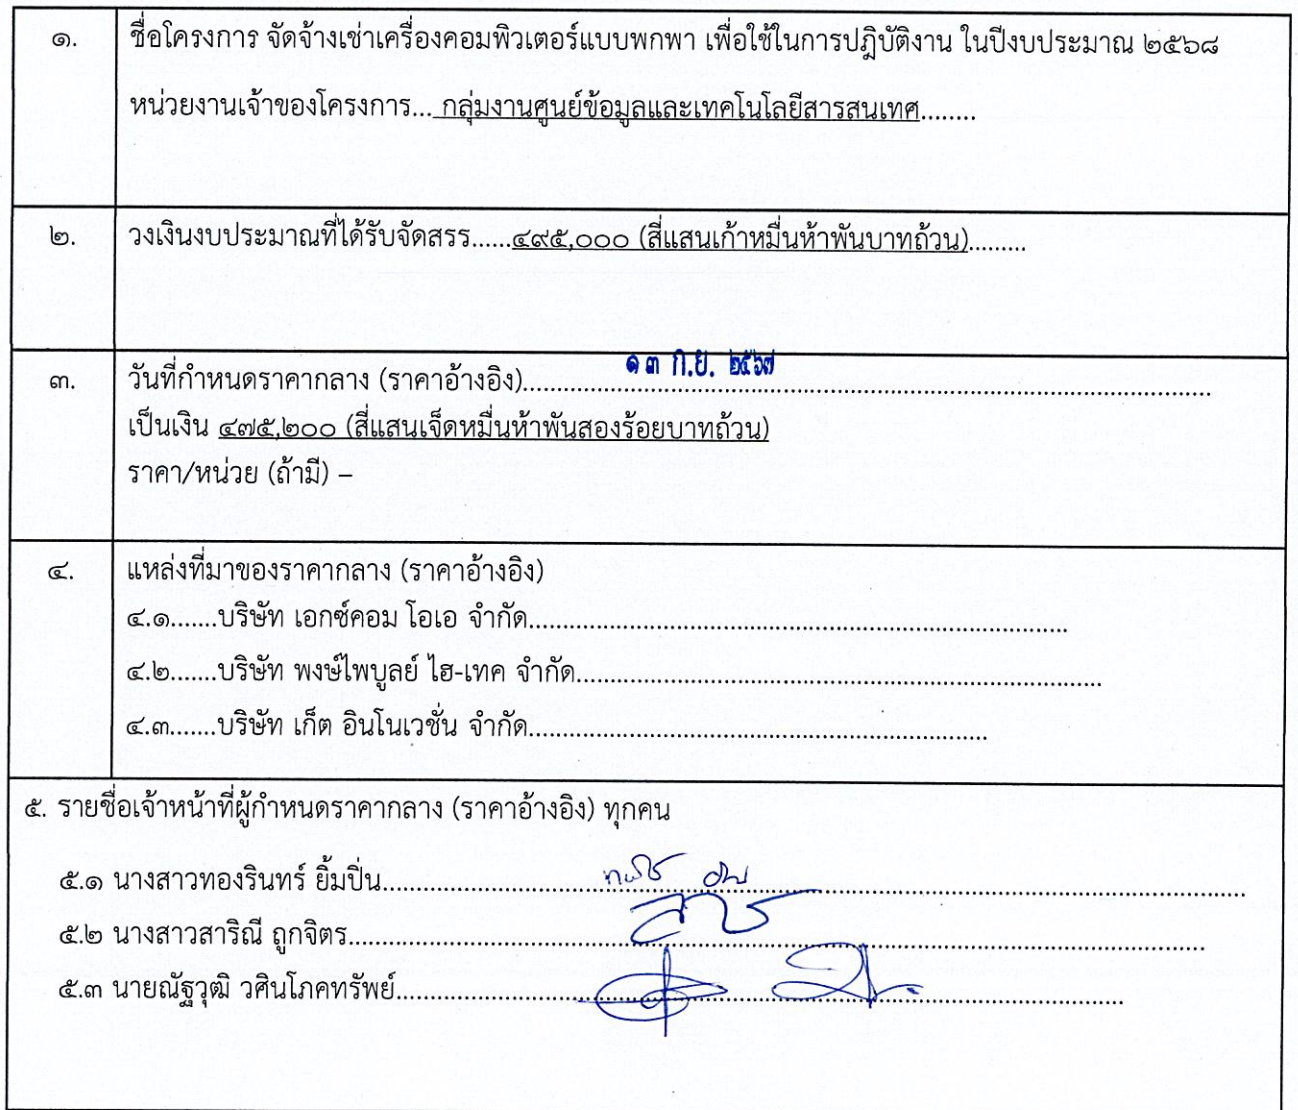 ๑. ชื่อโครงการ จัดจ้างเช่าเครื่องคอมพิวเตอร์แบบพกพา เพื่อใช้ในการปฏิบัติงาน ในปีงบประมาณ ๒๕๖๘
หน่วยงานเจ้าของโครงการ... กลุ่มงานศูนย์ข้อมูลและเทคโนโลยีสารสนเทศ........
๒. วงเงินงบประมาณที่ได้รับจัดสรร......๔๙๕,๐๐๐ (สี่แสนเก้าหมื่นห้าพันบาทถ้วน).........
๓. วันที่กำหนดราคากลาง (ราคาอ้างอิง)...............๑๓ ก.ย. ๒๕๖๗...............
เป็นเงิน ๔๗๕,๒๐๐ (สี่แสนเจ็ดหมื่นห้าพันสองร้อยบาทถ้วน)
ราคา/หน่วย (ถ้ามี) –
๔. แหล่งที่มาของราคากลาง (ราคาอ้างอิง)
๔.๑.......บริษัท เอกซ์คอม โอเอ จำกัด...............
๔.๒.......บริษัท พงษ์ไพบูลย์ ไฮ-เทค จำกัด...............
๔.๓.......บริษัท เก็ต อินโนเวชั่น จำกัด...............
๕. รายชื่อเจ้าหน้าที่ผู้กำหนดราคากลาง (ราคาอ้างอิง) ทุกคน
๕.๑ นางสาวทองรินทร์ ยิ้มปิ่น...............
๕.๒ นางสาวสาริณี ถูกจิตร...............
๕.๓ นายณัฐวุฒิ วศินโภคทรัพย์...............